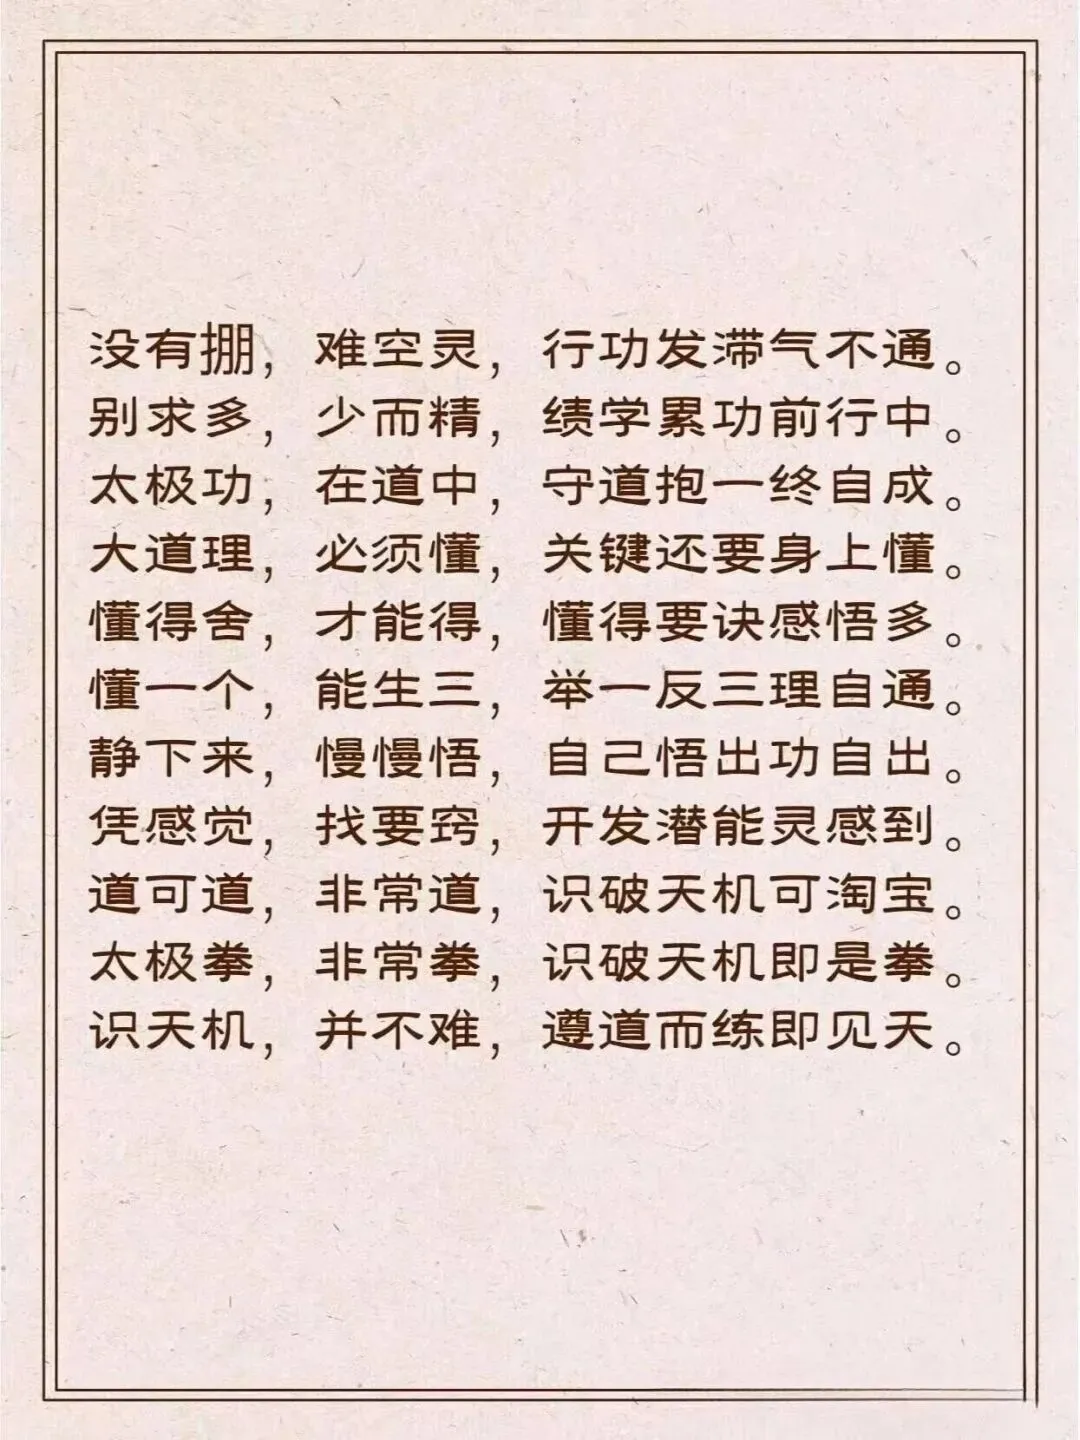 没有掤，难空灵，行功发滞气不通。
别求多，少而精，绩学累功前行中。
太极功，在道中，守道抱一终自成。
大道理，必须懂，关键还要身上懂。
懂得舍，才能得，懂得要诀感悟多。
懂一个，能生三，举一反三理自通。
静下来，慢慢悟，自己悟出功自出。
凭感觉，找要窍，开发潜能灵感到。
道可道，非常道，识破天机可淘宝。
太极拳，非常拳，识破天机即是拳。
识天机，并不难，遵道而练即见天。